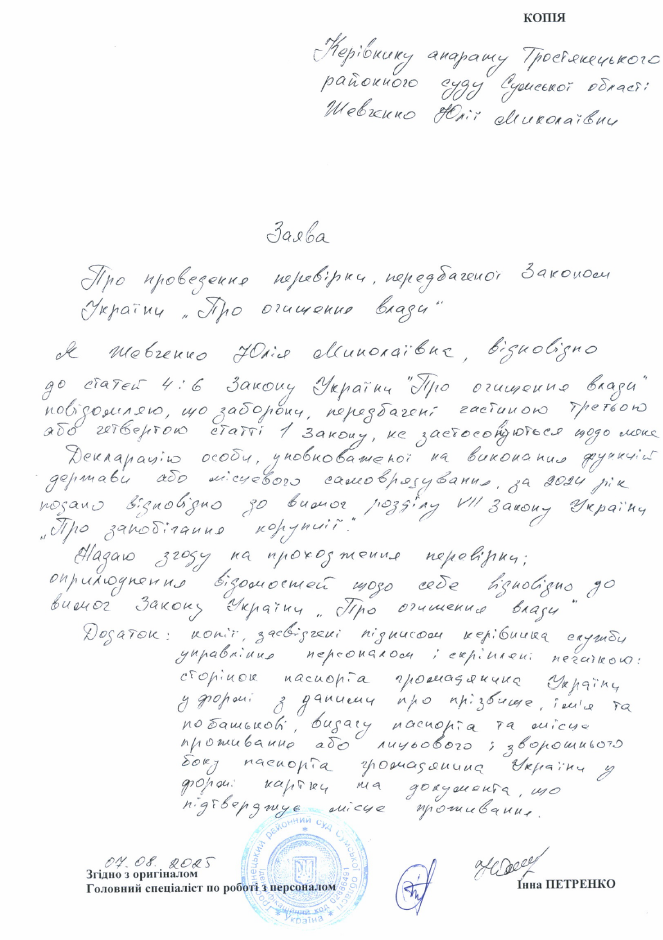 КОПІЯ
Керівнику апарату Тростянецького
районного суду Сумської області
Шевченко Юлії Миколаївни
Заява
Про проведення перевірки, передбаченої Законом
України „Про очищення влади"
Я Шевченко Юлія Миколаївна, відповідно
до статей 4 і 6 Закону України "Про очищення влади"
повідомляю, що заборони, передбачені частиною третьою
або четвертою статті 1 Закону, не застосовуються щодо мене
Декларацію особи, уповноваженої на виконання функцій
держави або місцевого самоврядування, за 2024 рік
подано відповідно до вимог розділу VII Закону України
„Про запобігання корупції".
Надаю згоду на проходження перевірки;
оприлюднення відомостей щодо себе відповідно до
вимог Закону України „Про очищення влади"
Додаток: копії, засвідчені підписом керівника служби
управління персоналом і скріплені печаткою:
сторінок паспорта громадянина України
у формі з даними про прізвище, ім'я та
по батькові, видачу паспорта та місце
проживання або лицьового і зворотнього
боку паспорта громадянина України у
формі картки та документа, що
підтверджує місце проживання.
07.08.2025
Згідно з оригіналом
Головний спеціаліст по роботі з персоналом
Інна ПЕТРЕНКО
районний суд Сумської області
Україна